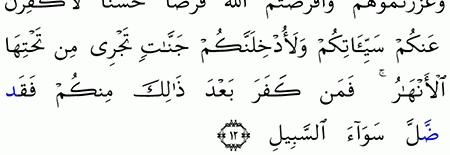 وَعَزَّرْتُمُوهُمْ وَأَقْرَضْتُمُ اللَّهَ قَرْضًا حَسَنًا لَأُكَفِّرَنَّ
عَنكُمْ سَيِّئَاتِكُمْ وَلَأُدْخِلَنَّكُمْ جَنَّاتٍ تَجْرِى مِن تَحْتِهَا
الْأَنْهَارُ ۚ فَمَن كَفَرَ بَعْدَ ذَٰلِكَ مِنكُمْ فَقَد
ضَّلَّ سَوَآءَ السَّبِيلِ ﴿١٢﴾